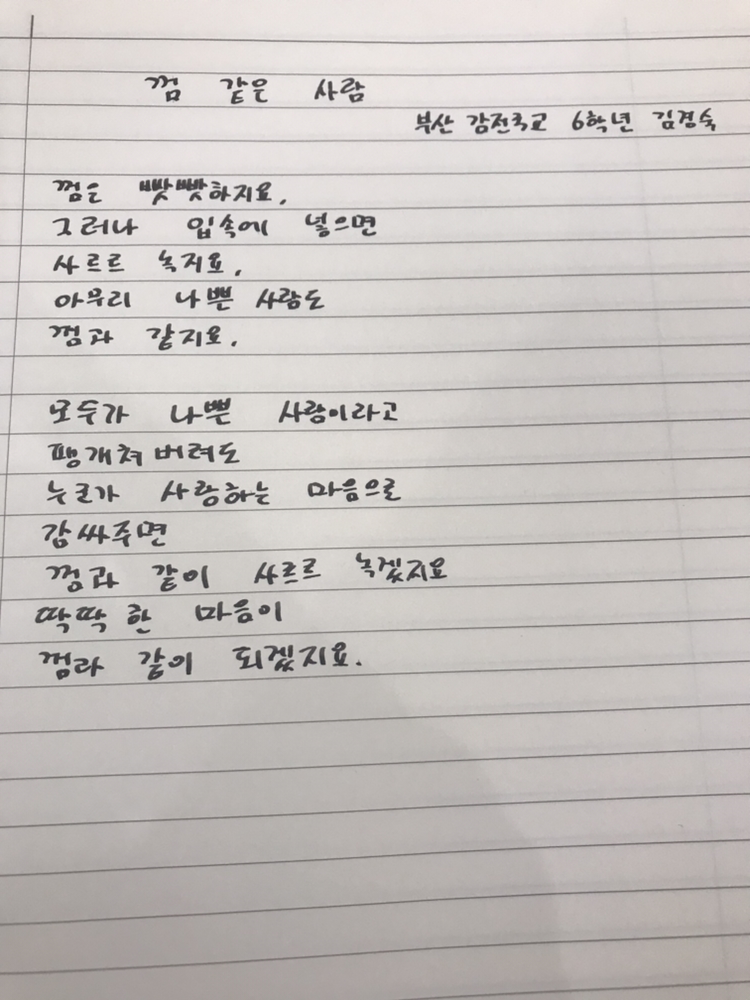 껌 같은 사람
부산 감전국교 6학년 김경숙
껌은 빳빳하지요.
그러나 입속에 넣으면
사르르 녹지요.
아무리 나쁜 사람도
껌과 같지요.
모두가 나쁜 사람이라고
팽개쳐 버려도
누군가 사랑하는 마음으로
감싸주면
껌과 같이 사르르 녹겠지요
딱딱한 마음이
껌과 같이 되겠지요.